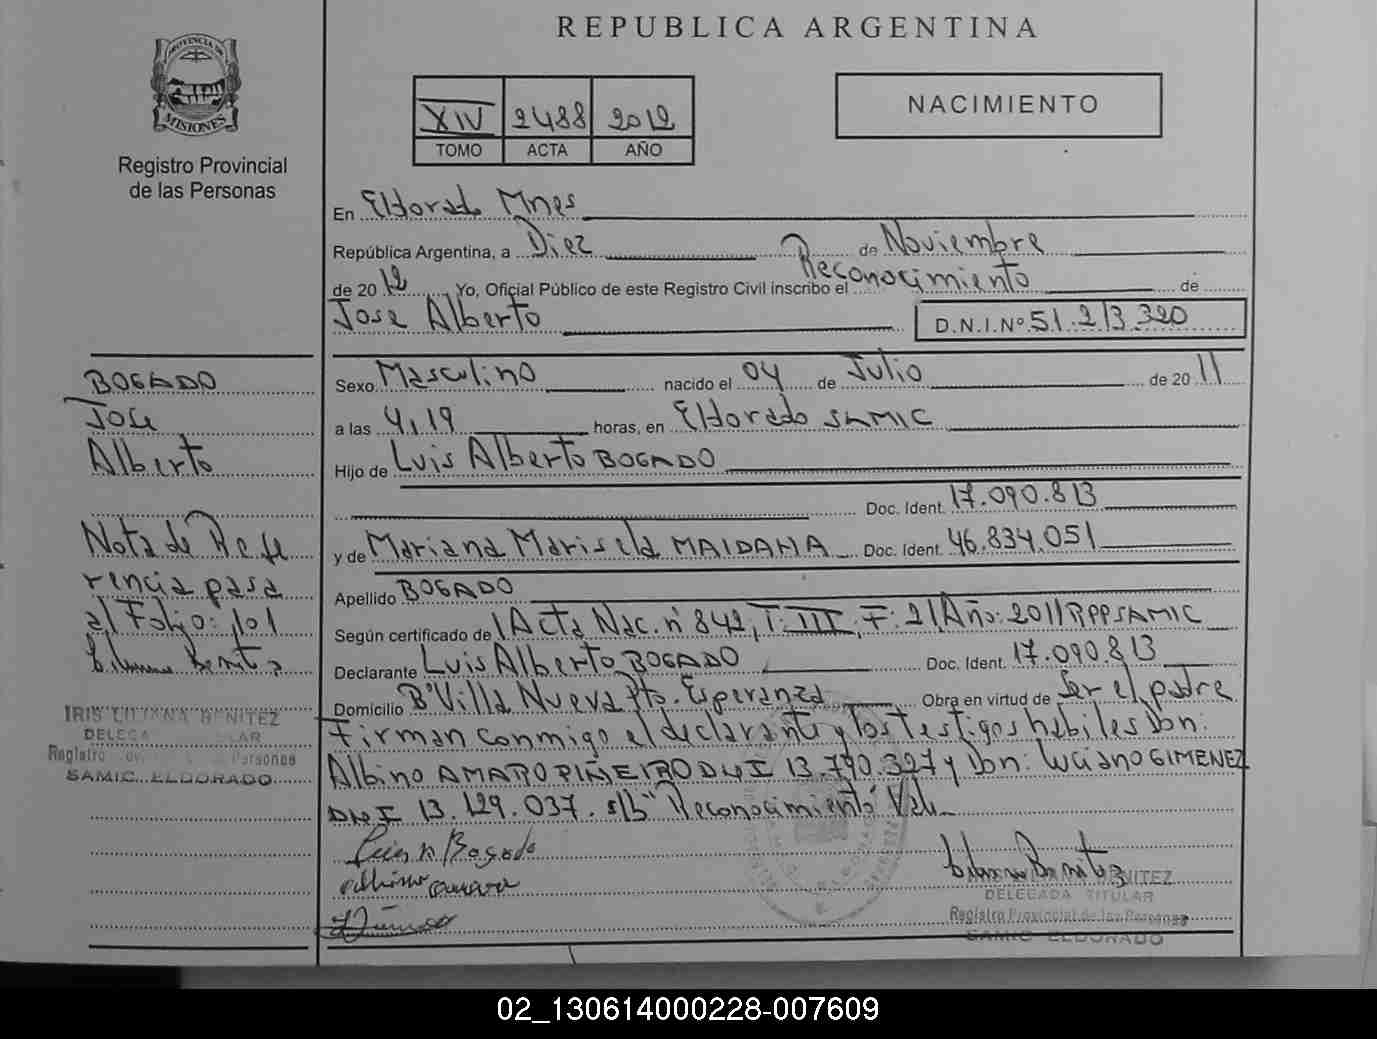 REPUBLICA ARGENTINA
PROVINCIA DE
MISIONES
Registro Provincial
de las Personas
XIV 2488 2012
TOMO ACTA AÑO
NACIMIENTO
En Eldorado Mnes
República Argentina, a Diez de Noviembre
de 2012 Yo, Oficial Público de este Registro Civil inscribo el Reconocimiento de
Jose Alberto D.N.I.Nº 51.213.320
BOGADO
Jose
Alberto
Nota de Refe
rencia pasa
al Folio: 101
IRIS LILIANA BENITEZ
Registro Personas
SAMIC ELDORADO
Sexo Masculino nacido el 04 de Julio de 2011
a las 4,19 horas, en Eldorado SAMIC
Hijo de Luis Alberto BOGADO
Doc. Ident. 17.090.813
y de Mariana Marisela MAIDANA Doc. Ident. 46.834.051
Apellido BOGADO
Según certificado de Acta Nac. nº 842, T: III, F: 21 Año: 2011 RPPSAMIC
Declarante Luis Alberto BOGADO Doc. Ident. 17.090.813
Domicilio Bº Villa Nueva Pto. Esperanza Obra en virtud de Ser el padre
Firman conmigo el declarante y los testigos hábiles Don:
Albino AMARO PIÑEIRO DNI 13.790.327 y Don: Luciano GIMENEZ
DNI 13.129.037. s/b "Reconocimiento" Vale
Luis A Bogado
BENITEZ
DELEGADA TITULAR
Registro Provincial de las Personas
SAMIC ELDORADO
02_130614000228-007609